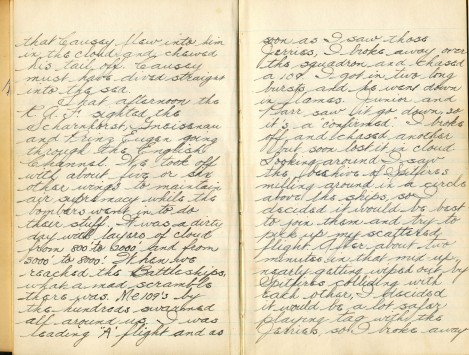 that Caussy flew into him
in the cloud and chewed
his tail off. Caussy
must have dived straight
into the sea.
That afternoon the
R.A.F. sighted the
Scharnhorst, Gneisenau
and Prinz Eugen going
through the English
Channel. We took off
with about five or six
other wings to maintain
air supremacy while the
bombers went in to do
their stuff. It was a dirty
day with layers of cloud
from 800' to 3000' and from
5000' to 8000'. When we
reached the Battleships,
what a mad scramble
there was. Me 109's by
the hundreds swarmed
all around us. I was
leading 'A' flight and as
soon as I saw those
Jerries, I broke away over
the squadron and chased
a 109. I got in two long
bursts, and he went down
in flames. Junior and
saw it go down, so
it's a confirmed. I broke
off and chased another
but soon lost it in cloud
Looking around I saw
the beehive of Spitfires
milling around in a circle
above the ships, so
decided it would be best
to join them and try to
pick up my scattered
flight. After about two
minutes in that mix-up,
nearly getting wiped out by
Spitfires colliding with
each other, I decided
it would be a lot safer
playing tag with the
Jerries, so I broke away